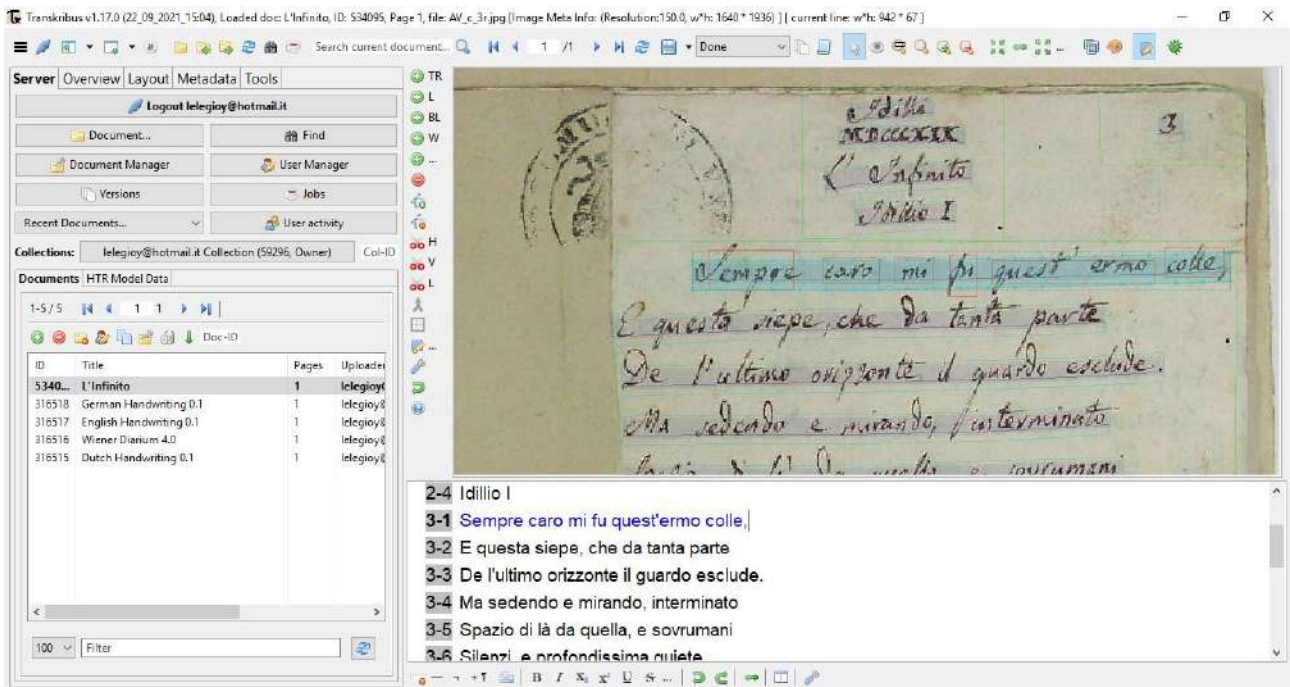 Transkribus v1.17.0 (22_09_2021_15:04), Loaded doc: L'Infinito, ID: 534095, Page 1, file: AV_c_3r.jpg [Image Meta Info: (Resolution:150.0, w*h: 1640 * 1936) ] [ current line: w*h: 942 * 67 ]
Search current document... 1 /1 Done
Server Overview Layout Metadata Tools
Logout lelegioy@hotmail.it
Document... Find
Document Manager User Manager
Versions Jobs
Recent Documents... User activity
Collections: lelegioy@hotmail.it Collection (59296, Owner) Col-ID
Documents HTR Model Data
1-5/5 1 1
Doc-ID
ID Title Pages Uploader
5340... L'Infinito 1 lelegioy
316518 German Handwriting 0.1 1 lelegioy
316517 English Handwriting 0.1 1 lelegioy
316516 Wiener Diarium 4.0 1 lelegioy
316515 Dutch Handwriting 0.1 1 lelegioy
100 Filter
TR
L
BL
W
...
H
V
L
...
Idilli
MDCCCXIX
3
L'Infinito
Idillio I
Sempre caro mi fu quest'ermo colle,
E questa siepe, che da tanta parte
De l'ultimo orizzonte il guardo esclude.
Ma sedendo e mirando, interminato
Spazio di là da quella, e sovrumani
2-4 Idillio I
3-1 Sempre caro mi fu quest'ermo colle,
3-2 E questa siepe, che da tanta parte
3-3 De l'ultimo orizzonte il guardo esclude.
3-4 Ma sedendo e mirando, interminato
3-5 Spazio di là da quella, e sovrumani
3-6 Silenzi, e profondissima quiete
B I X₁ x¹ U S ...